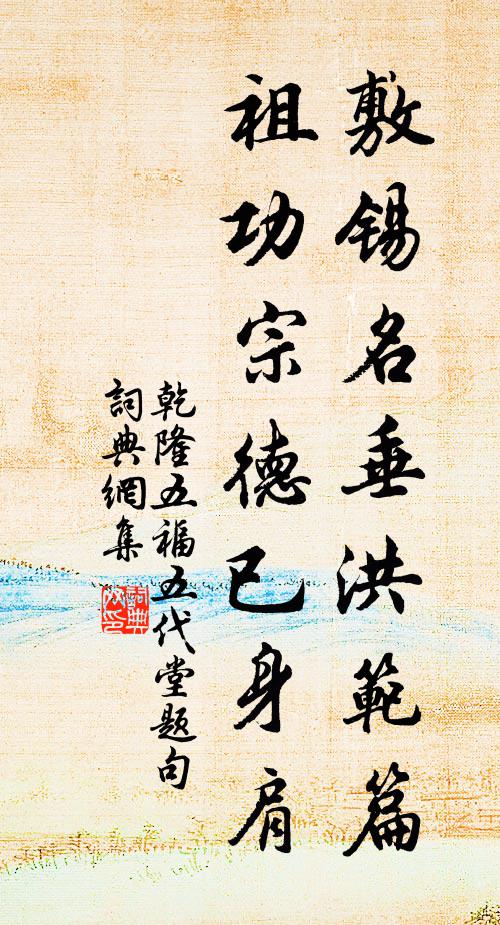 敷錫名垂洪範篇
祖功宗德已身肩
乾隆五福五代堂題句
詞典網集